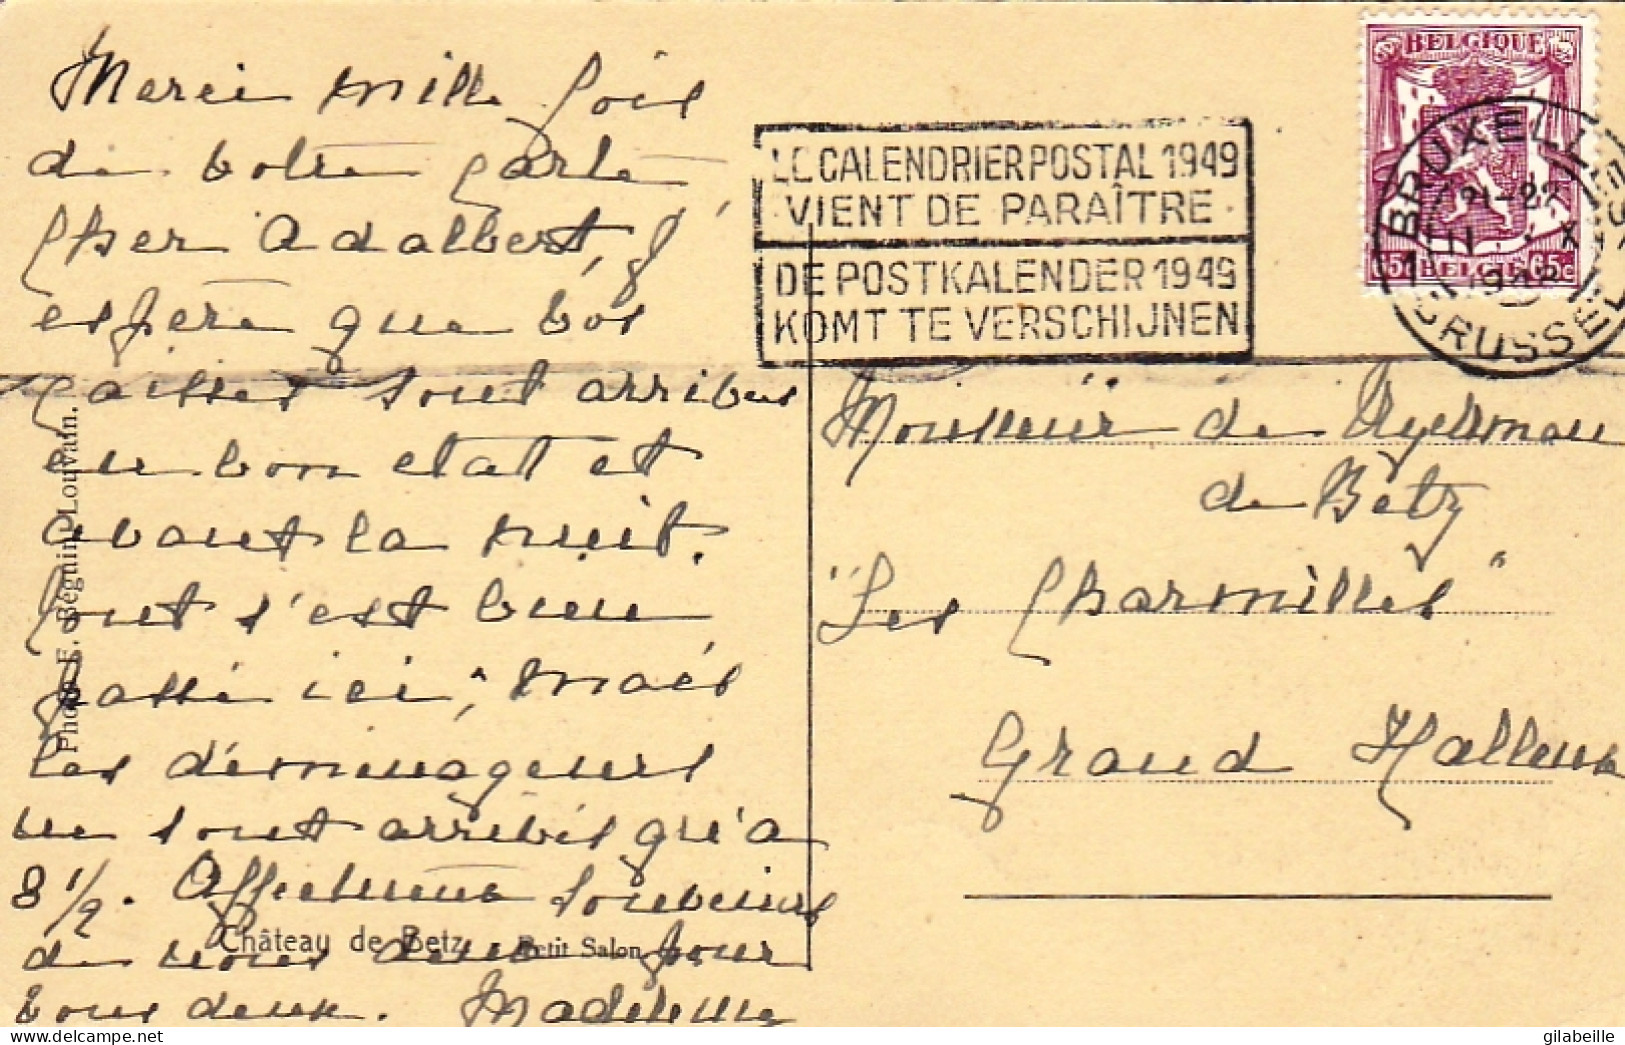 Merci mille fois
de votre carte
Cher Adalbert, j'
espère que vos
caisses sont arrivées
en bon état et
avant la nuit.
Tout s'est bien
passé ici, mais
les déménageurs
ne sont arrivés qu'à
8 1/2. Affectueux souvenirs
de nous deux pour
vous deux. Madeleine
Photo E. Béguin, Louvain.
Château de Betz Petit Salon
LE CALENDRIER POSTAL 1949
VIENT DE PARAÎTRE
DE POSTKALENDER 1949
KOMT TE VERSCHIJNEN
BELGIQUE
65c BELGIE 65c
1 BRUXELLES
21-22
11 X
1948
BRUSSEL
Monsieur de Ryckman
de Betz
"Les Charmilles"
Grand Halleux
delcampe.net
gilabeille